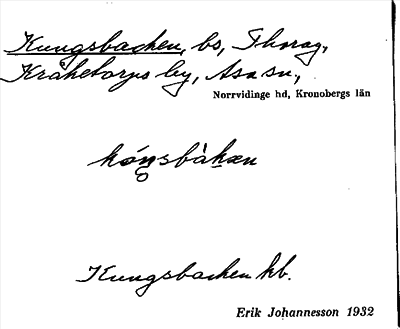 Kungsbacken, bs, Thorag,
Kråketorps by, Asa sn,
Norrvidinge hd, Kronobergs län
kóngsbàkæn
Kungsbacken hb.
Erik Johannesson 1932